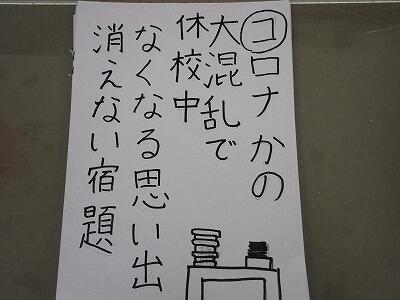 コロナかの
大混乱で
休校中
なくなる思い出
消えない宿題